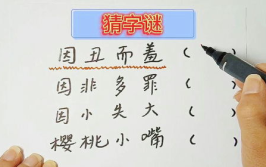 猜字谜
因丑而羞（ ）
因非多罪（ ）
因小失大（ ）
樱桃小嘴（ ）